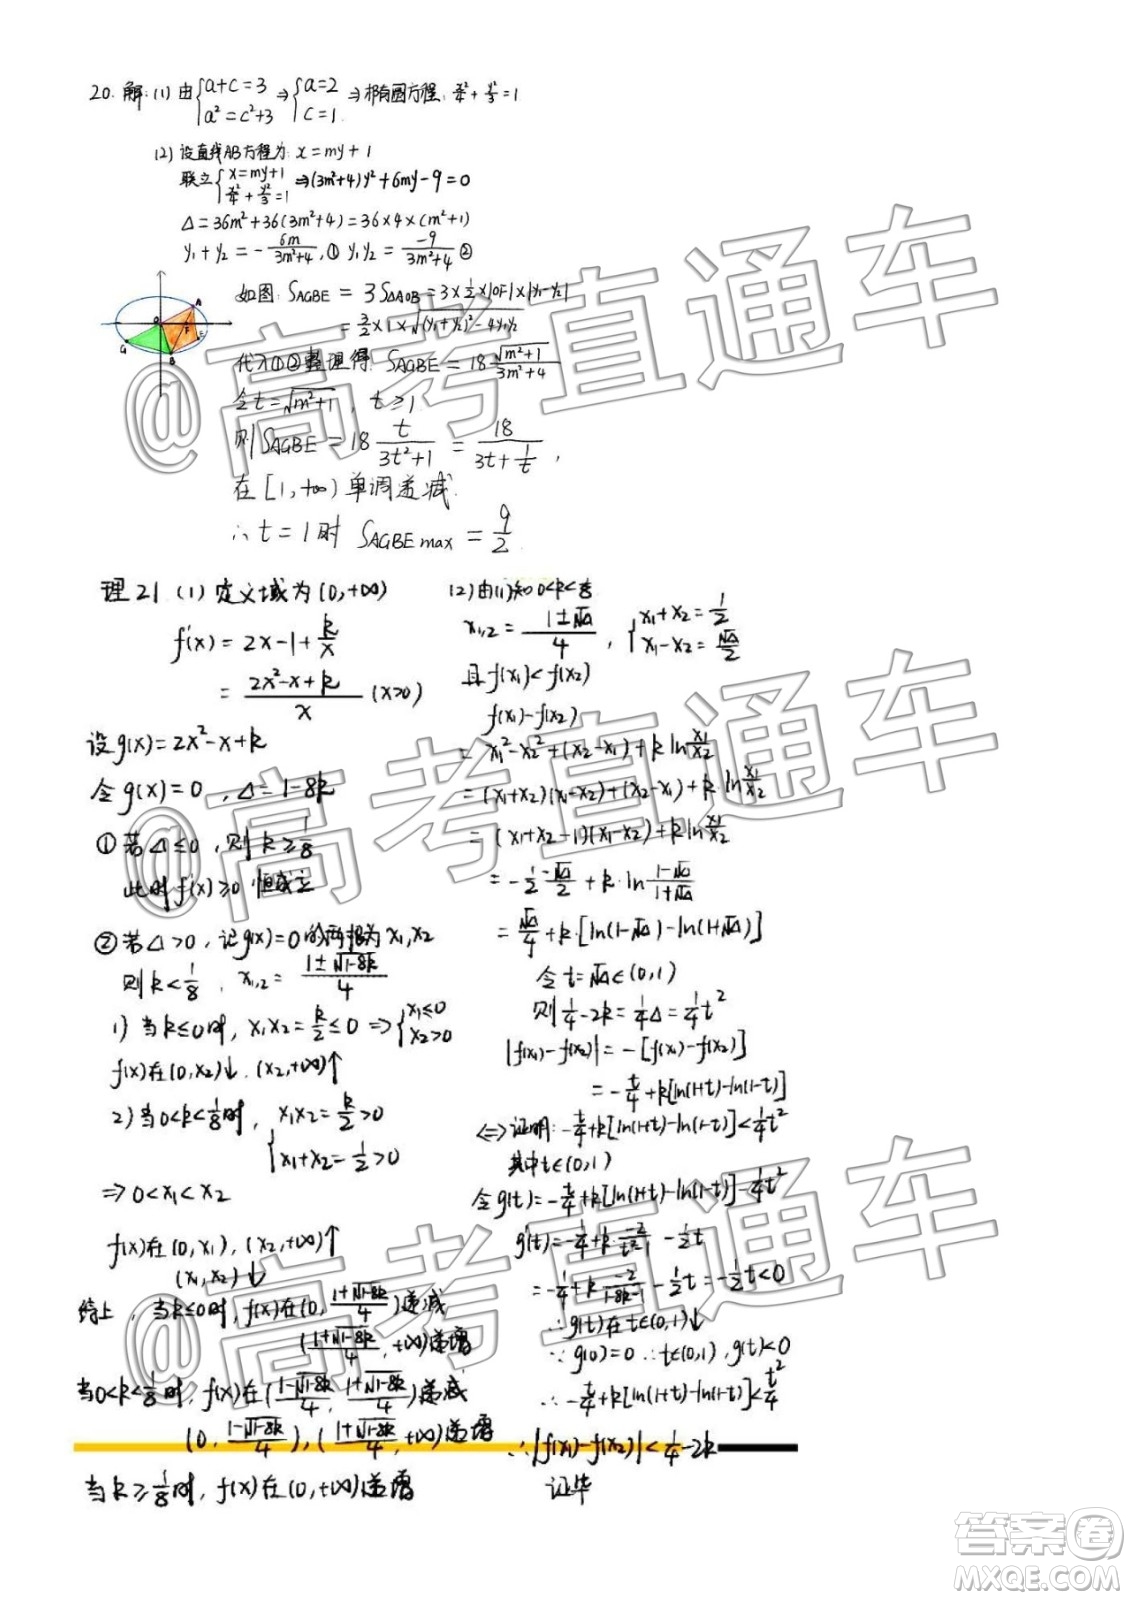 20. 解: (1) 由 {a+c=3 a²=c²+3 ⇒ {a=2 c=1. ⇒ 椭圆方程: x²/4 + y²/3 = 1
(2) 设直线AB方程为: x=my+1
联立 {x=my+1 x²/4+y²/3=1 ⇒ (3m²+4)y²+6my-9=0
Δ=36m²+36(3m²+4)=36×4×(m²+1)
y₁+y₂=-6m/(3m²+4), ① y₁y₂=-9/(3m²+4) ②
如图: S_AGBE = 3S_ΔAOB = 3×1/2×|OF|×|y₁-y₂|
= 3/2×1×√((y₁+y₂)²-4y₁y₂)
代入①②整理得: S_AGBE = 18 √(m²+1)/(3m²+4)
令t=√(m²+1), t≥1
则 S_AGBE = 18 t/(3t²+1) = 18/(3t+1/t),
在[1,+∞)单调递减.
∴t=1时 S_AGBE max = 9/2
A
O
F
E
G
B
理21 (1) 定义域为(0,+∞)
f'(x)=2x-1+k/x
= (2x²-x+k)/x (x>0)
设g(x)=2x²-x+k
令g(x)=0, Δ=1-8k
①若Δ≤0, 则k≥1/8
此时f'(x)≥0 恒成立
②若Δ>0, 记g(x)=0的两根为x₁,x₂
则k<1/8, x₁,₂=(1±√(1-8k))/4
1) 当k≤0时, x₁x₂=k/2≤0 ⇒ {x₁≤0 x₂>0
f(x)在(0,x₂)↓, (x₂,+∞)↑
2) 当0<k<1/8时, {x₁x₂=k/2>0 x₁+x₂=1/2>0
⇒ 0<x₁<x₂
f(x)在(0,x₁), (x₂,+∞)↑
(x₁,x₂)↓
综上, 当k≤0时, f(x)在(0, (1+√(1-8k))/4)递减
((1+√(1-8k))/4, +∞)递增
当0<k<1/8时, f(x)在((1-√(1-8k))/4, (1+√(1-8k))/4)递减
(0, (1-√(1-8k))/4), ((1+√(1-8k))/4, +∞)递增
当k≥1/8时, f(x)在(0,+∞)递增
(2) 由(1)知0<k<1/8
x₁,₂=(1±√Δ)/4, {x₁+x₂=1/2 x₁-x₂=√Δ/2
且f(x₁)<f(x₂)
f(x₁)-f(x₂)
= x₁²-x₂²+(x₂-x₁)+k ln x₁/x₂
= (x₁+x₂)(x₁-x₂)+(x₂-x₁)+k·ln x₁/x₂
= (x₁+x₂-1)(x₁-x₂)+k ln x₁/x₂
= -1/2·-√Δ/2+k·ln (1-√Δ)/(1+√Δ)
= √Δ/4+k·[ln(1-√Δ)-ln(1+√Δ)]
令t=√Δ∈(0,1)
则1/4-2k=1/4Δ=1/4t²
|f(x₁)-f(x₂)|=-[f(x₁)-f(x₂)]
=-t/4+k[ln(1+t)-ln(1-t)]
⇔证明: -t/4+k[ln(1+t)-ln(1-t)]<1/4t²
其中t∈(0,1)
令g(t)=-t/4+k[ln(1+t)-ln(1-t)]-1/4t²
g'(t)=-1/4+k·-2/(t²-1)-1/2t
=-1/4+k·-2/(1-8k-1)-1/2t=-1/2t<0
∴g(t)在t∈(0,1)↓
∵g(0)=0 ∴t∈(0,1), g(t)<0
∴-t/4+k[ln(1+t)-ln(1-t)]<t²/4
∴|f(x₁)-f(x₂)|<1/4-2k
证毕
@高考直通车
@高考直通车
@高考直通车
答案圈
MXQE.COM